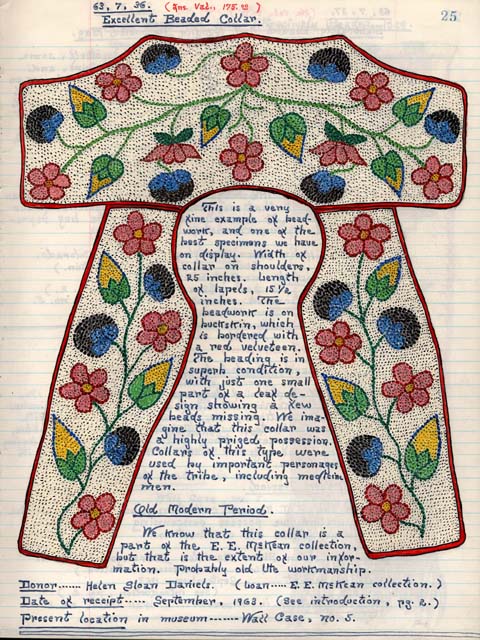 63, 7, 36. (Ins. Val., 175.00)
Excellent Beaded Collar.
25
This is a very
fine example of bead-
work, and one of the
best specimens we have
on display. Width of
collar on shoulders,
25 inches. Length
of lapels, 15 1/2
inches. The
beadwork is on
buckskin, which
is bordered with
a red velveteen.
The beading is in
superb condition,
with just one small
part of a leaf de-
sign showing a few
beads missing. We ima-
gine that this collar was
a highly prized possession.
Collars of this type were
used by important personages
of the tribe, including medicine
men.
Old Modern Period.
We know that this collar is a
part of the E. E. McKean collection,
but that is the extent of our infor-
mation. Probably old Ute workmanship.
Donor...... Helen Sloan Daniels. (Loan.... E. E. McKean collection.)
Date of receipt..... September, 1963. (See introduction, pg. 2.)
Present location in museum....... Wall Case, no. 5.